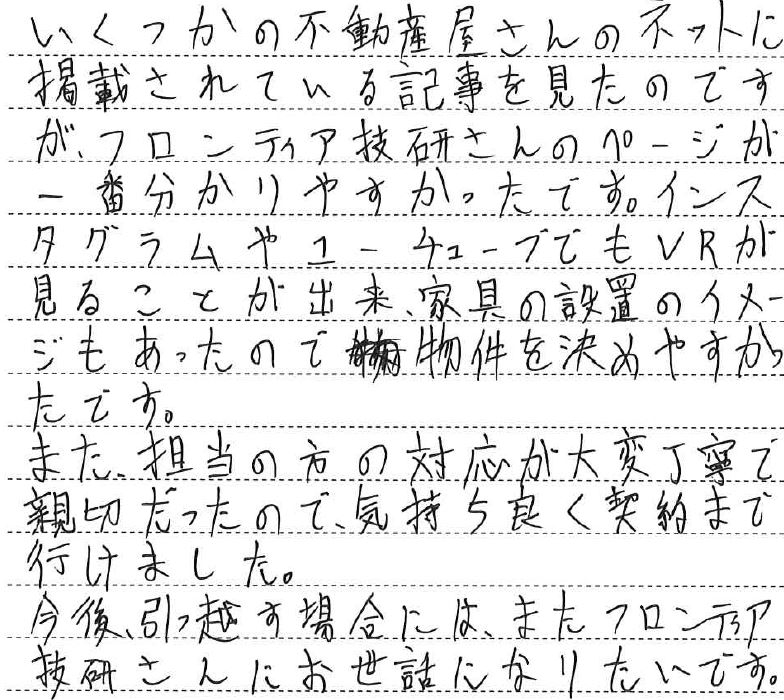 いくつかの不動産屋さんのネットに
掲載されている記事を見たのです
が、フロンティア技研さんのページが
一番分かりやすかったです。インス
タグラムやユーチューブでもVRが
見ることが出来、家具の設置のイメー
ジもあったので物件を決めやすかっ
たです。
また、担当の方の対応が大変丁寧で
親切だったので、気持ち良く契約まで
行けました。
今後、引っ越す場合には、またフロンティア
技研さんにお世話になりたいです。